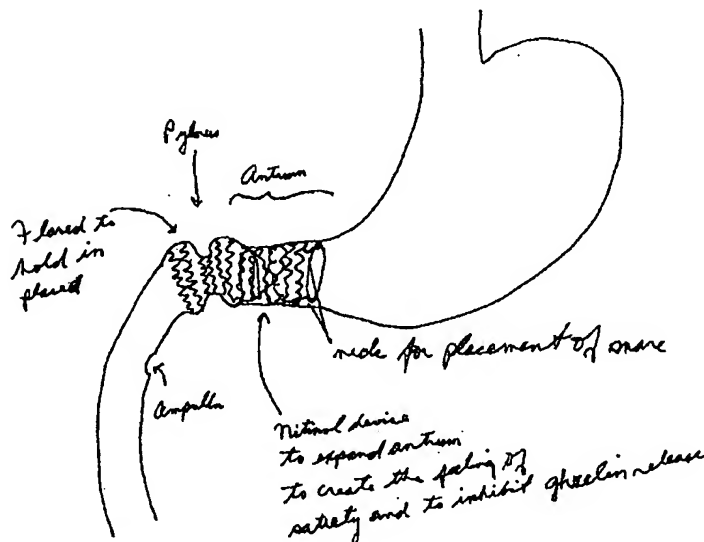 Pylorus
Antrum
Flared to
hold in
placed
node for placement of snare
Ampulla
Nitinol device
to expand antrum
to create the feeling of
satiety and to inhibit ghrelin release